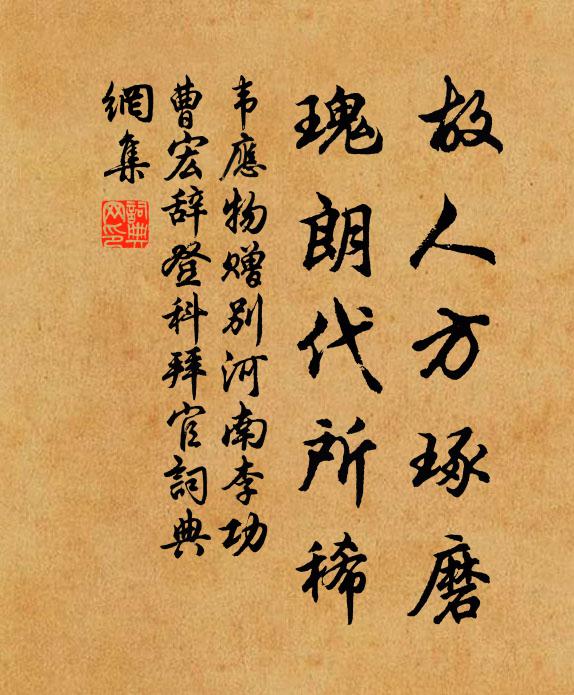 故人方琢磨
瑰朗代所稀
韦應物贈别河南李功
曹宏辞登科拜官詞典
網集
詞典網印